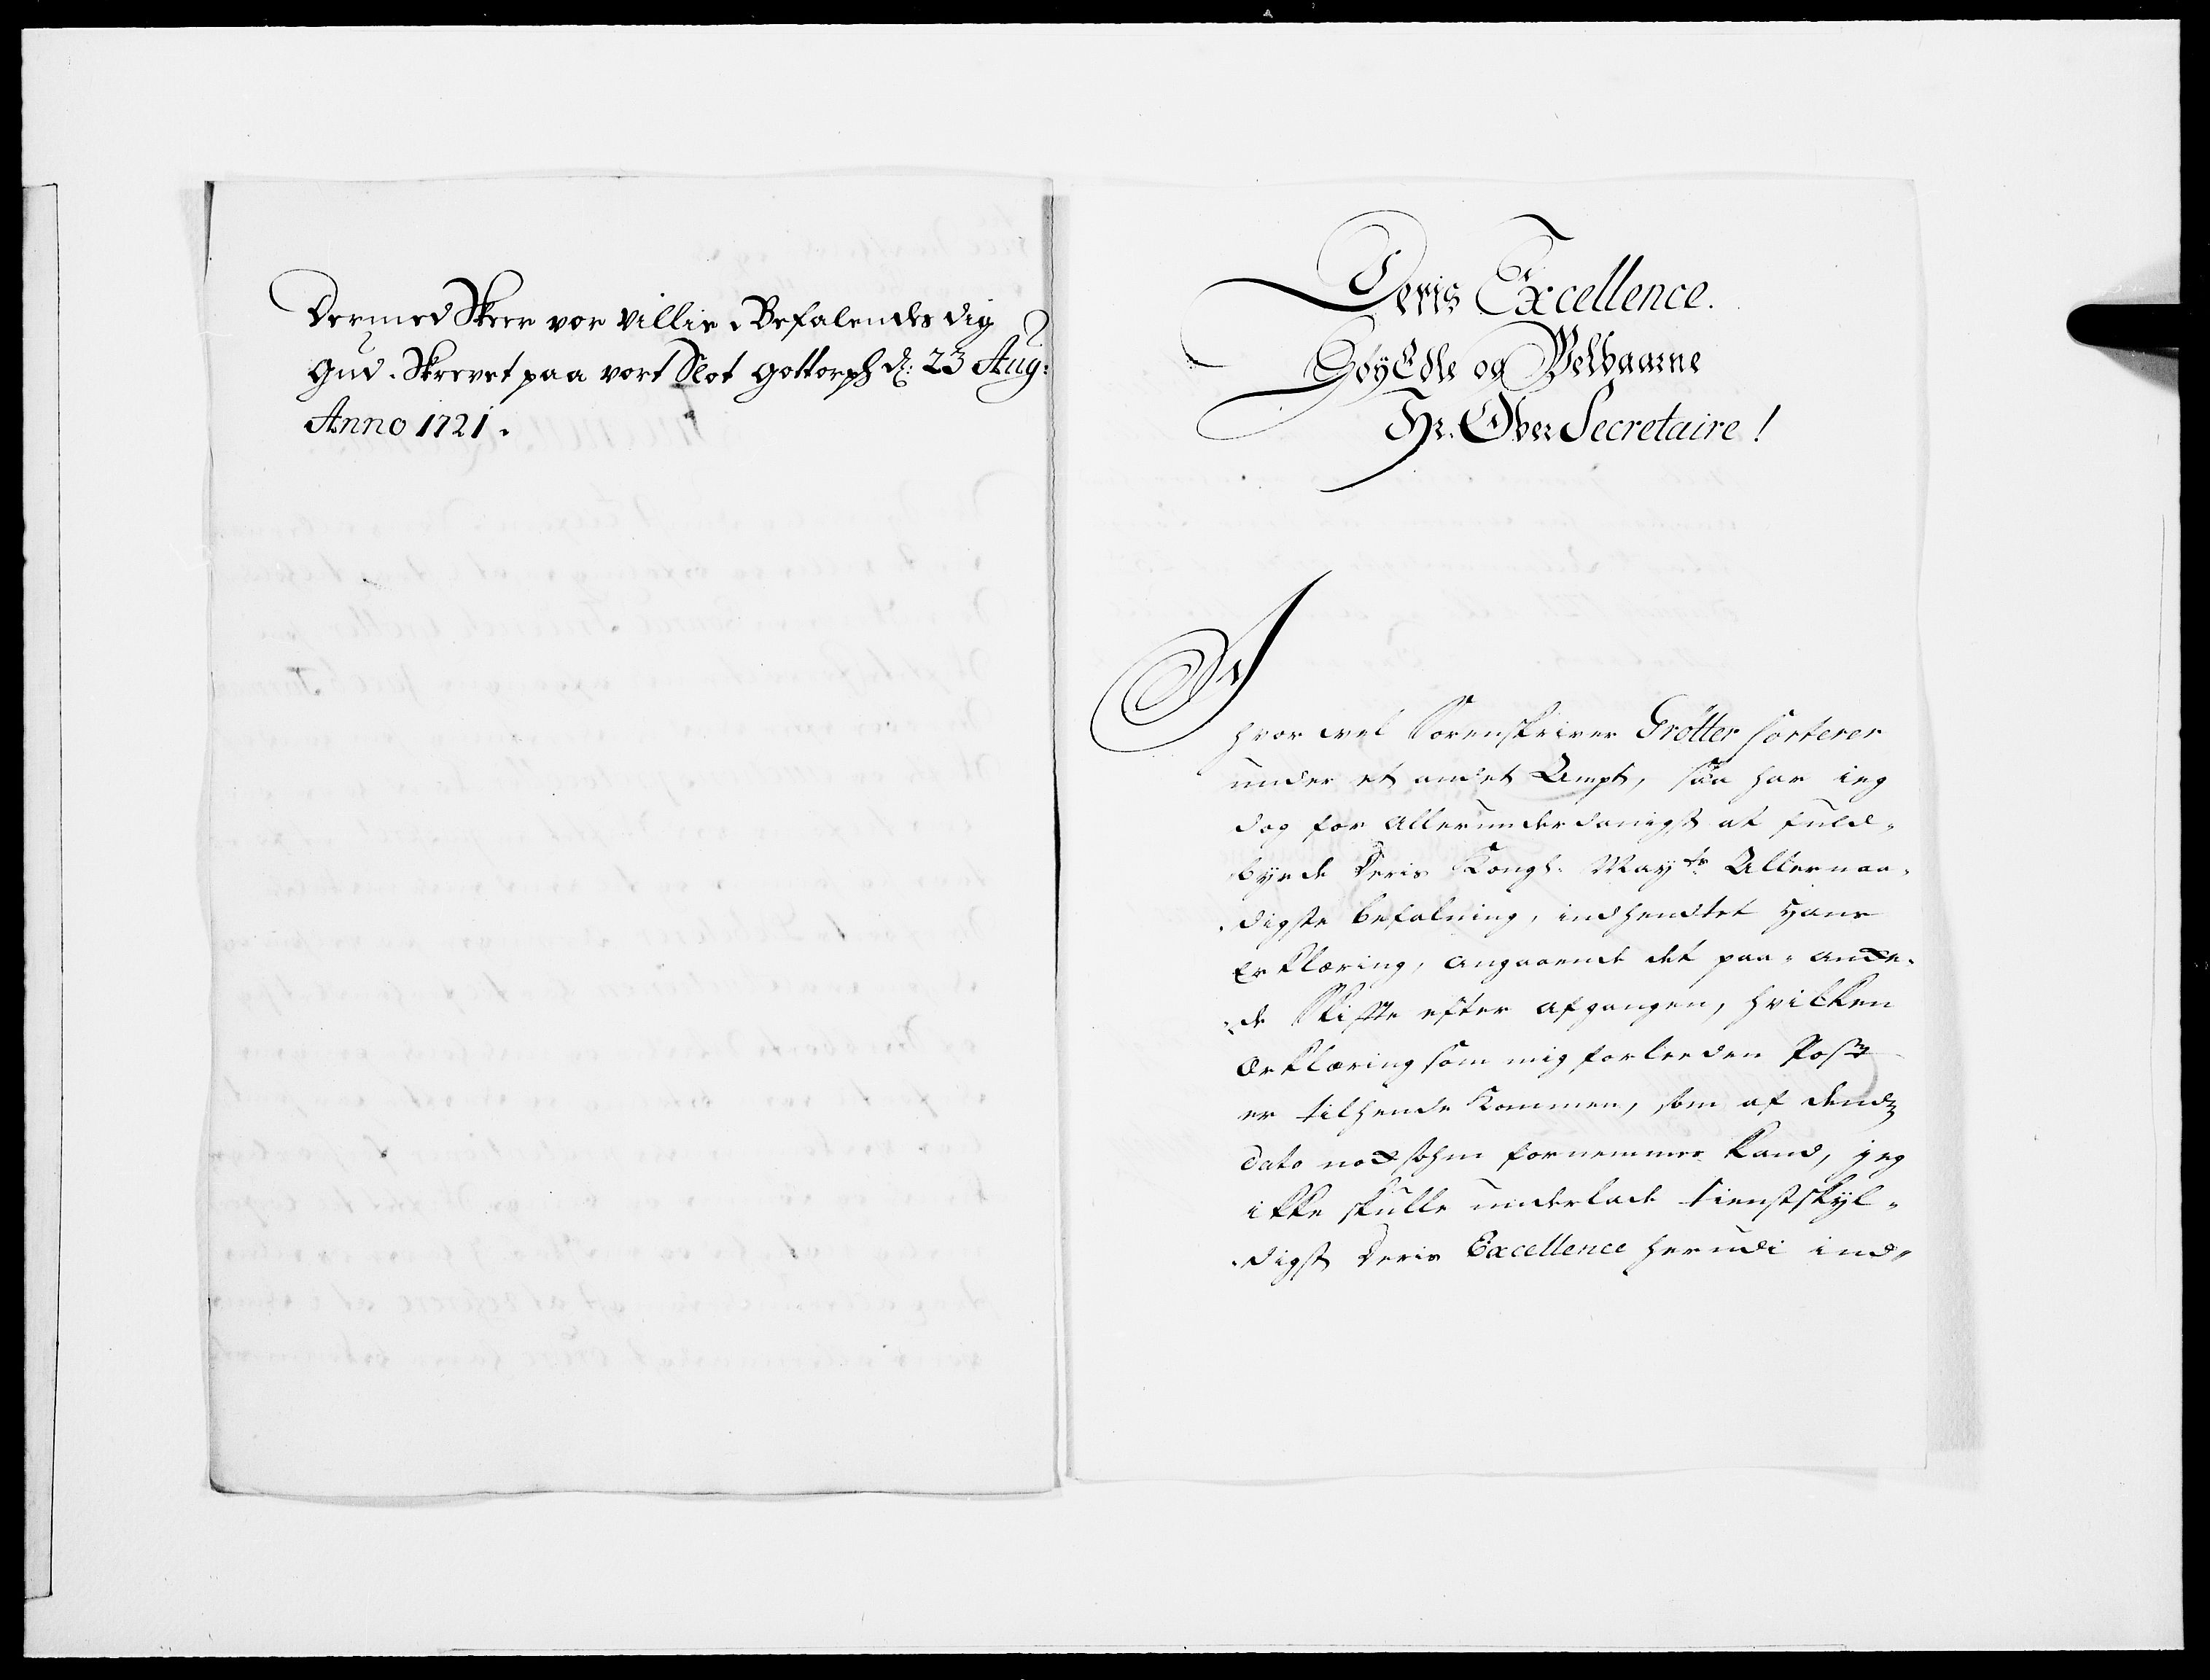 Dermed Skeer vor villie. Befalendes dig
Gud. Skrevet paa vort Slot Gottorph d: 23 Aug:
Anno 1721.
Deris Excellence.
HøyEdle og Velbaarne
Hr. Over Secretaire!
Ihvor vel Sorenskriver Grötter sorterer
under et andet Ampt, saa har ieg
dog for allerunderdanigst at fuld-
byrde Deris Kongl. Mayts Allernaa-
digste befalning, indhendtet Hans
Erklæring, angaaende det paa-anke-
de Skifte efter afgangen, hvilken
Erklæring som mig forleeden Post
er tilhende kommen, som af dends
dato nochsom fornemmes kand, ieg
ikke skulle underlade tienstskyl-
digst Deris Excellence herudi ind-